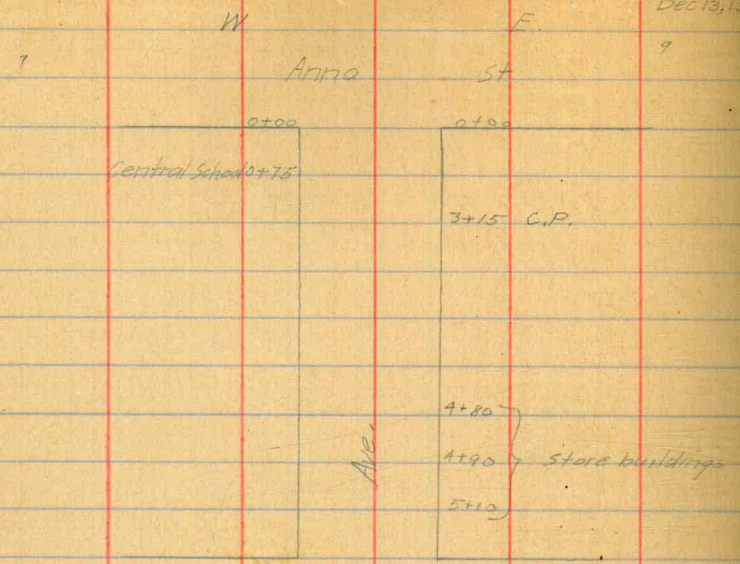 Dec 13, 1
W E.
7 9
Anna St
0+00 0+00
Central School 0+75
3+15 C.P.
4+80
Ave. 4+90 Store buildings
5+10